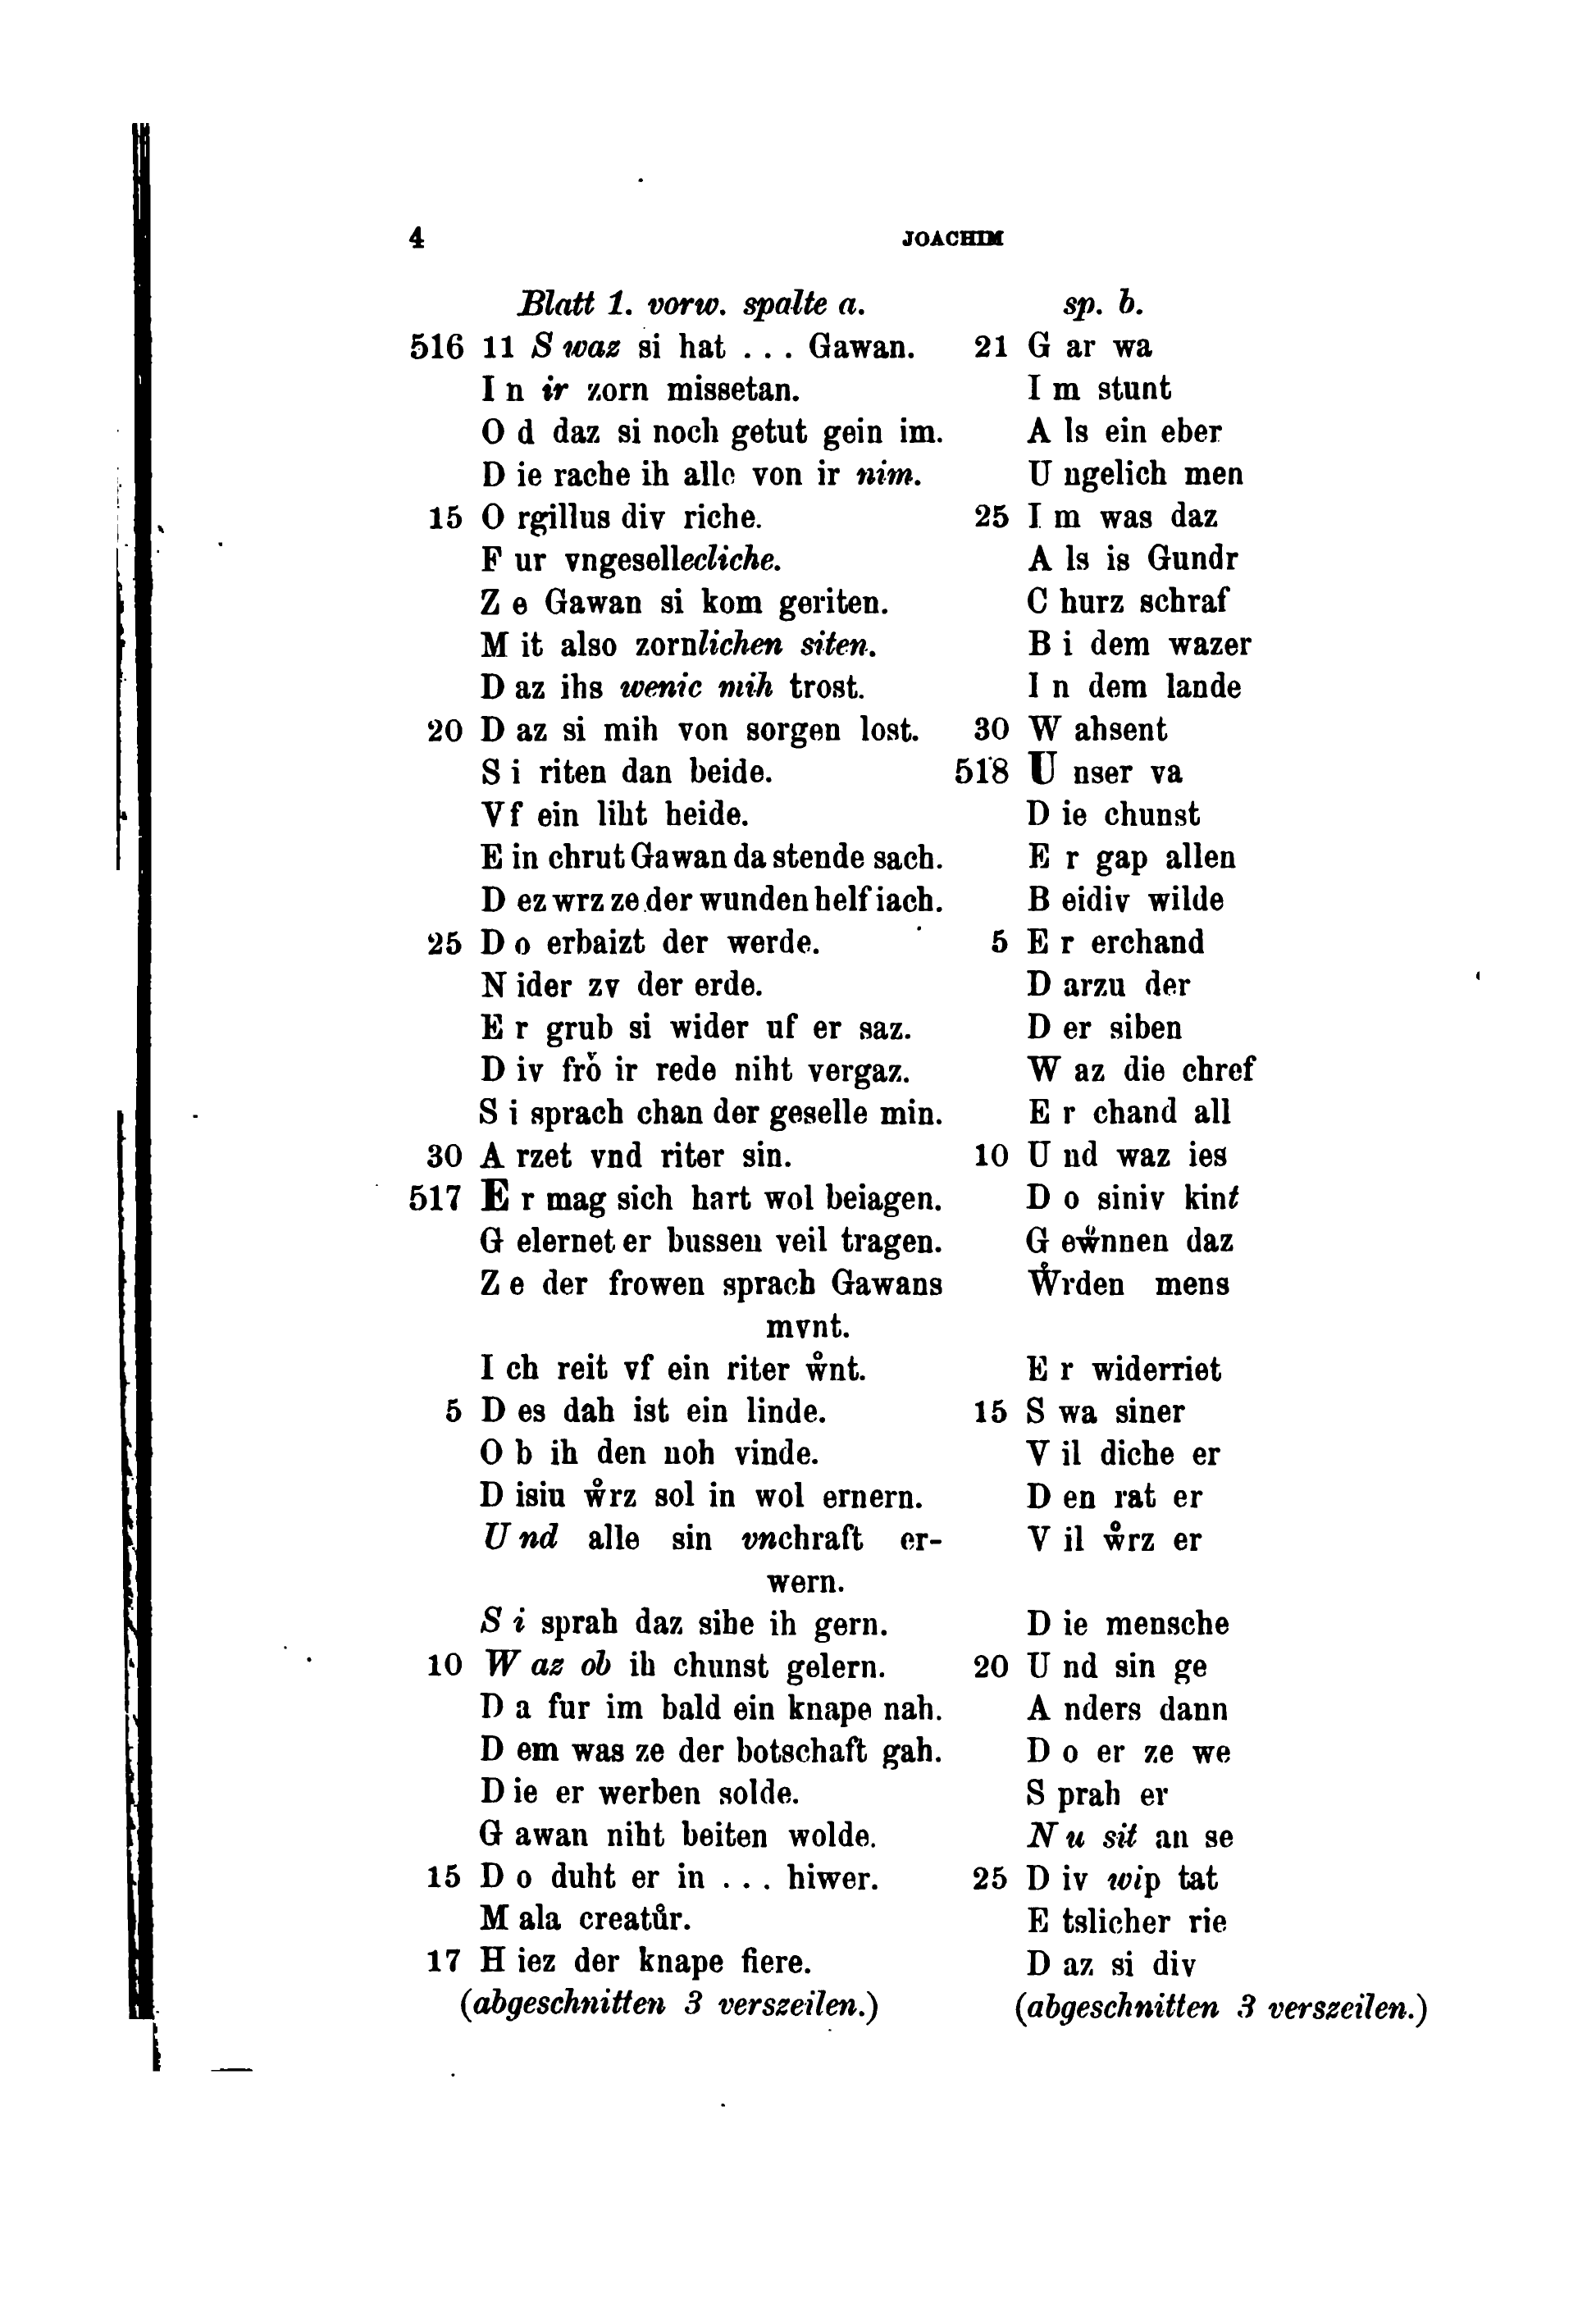 4 JOACHIM
Blatt 1. vorw. spalte a.
516 11 S waz si hat ... Gawan.
I n ir zorn missetan.
O d daz si noch getut gein im.
D ie rache ih alle von ir nim.
15 O rgillus div riche.
F ur vngesellecliche.
Z e Gawan si kom geriten.
M it also zornlichen siten.
D az ihs wenic mih trost.
20 D az si mih von sorgen lost.
S i riten dan beide.
V f ein liht heide.
E in chrut Gawan da stende sach.
D ez wrz ze der wunden helf iach.
25 D o erbaizt der werde.
N ider zv der erde.
E r grub si wider uf er saz.
D iv froͮ ir rede niht vergaz.
S i sprach chan der geselle min.
30 A rzet vnd riter sin.
517 E r mag sich hart wol beiagen.
G elernet er bussen veil tragen.
Z e der frowen sprach Gawans
mvnt.
I ch reit vf ein riter ẘnt.
5 D es dah ist ein linde.
O b ih den noh vinde.
D isiu ẘrz sol in wol ernern.
U nd alle sin vnchraft er-
wern.
S i sprah daz sihe ih gern.
10 W az ob ih chunst gelern.
D a fur im bald ein knape nah.
D em was ze der botschaft gah.
D ie er werben solde.
G awan niht beiten wolde.
15 D o duht er in ... hiwer.
M ala creatůr.
17 H iez der knape fiere.
(abgeschnitten 3 verszeilen.)
sp. b.
21 G ar wa
I m stunt
A ls ein eber
U ngelich men
25 I m was daz
A ls is Gundr
C hurz schraf
B i dem wazer
I n dem lande
30 W ahsent
518 U nser va
D ie chunst
E r gap allen
B eidiv wilde
5 E r erchand
D arzu der
D er siben
W az die chref
E r chand all
10 U nd waz ies
D o siniv kint
G eẅnnen daz
W̊rden mens
E r widerriet
15 S wa siner
V il diche er
D en rat er
V il ẘrz er
D ie mensche
20 U nd sin ge
A nders dann
D o er ze we
S prah er
N u sit an se
25 D iv wip tat
E tslicher rie
D az si div
(abgeschnitten 3 verszeilen.)